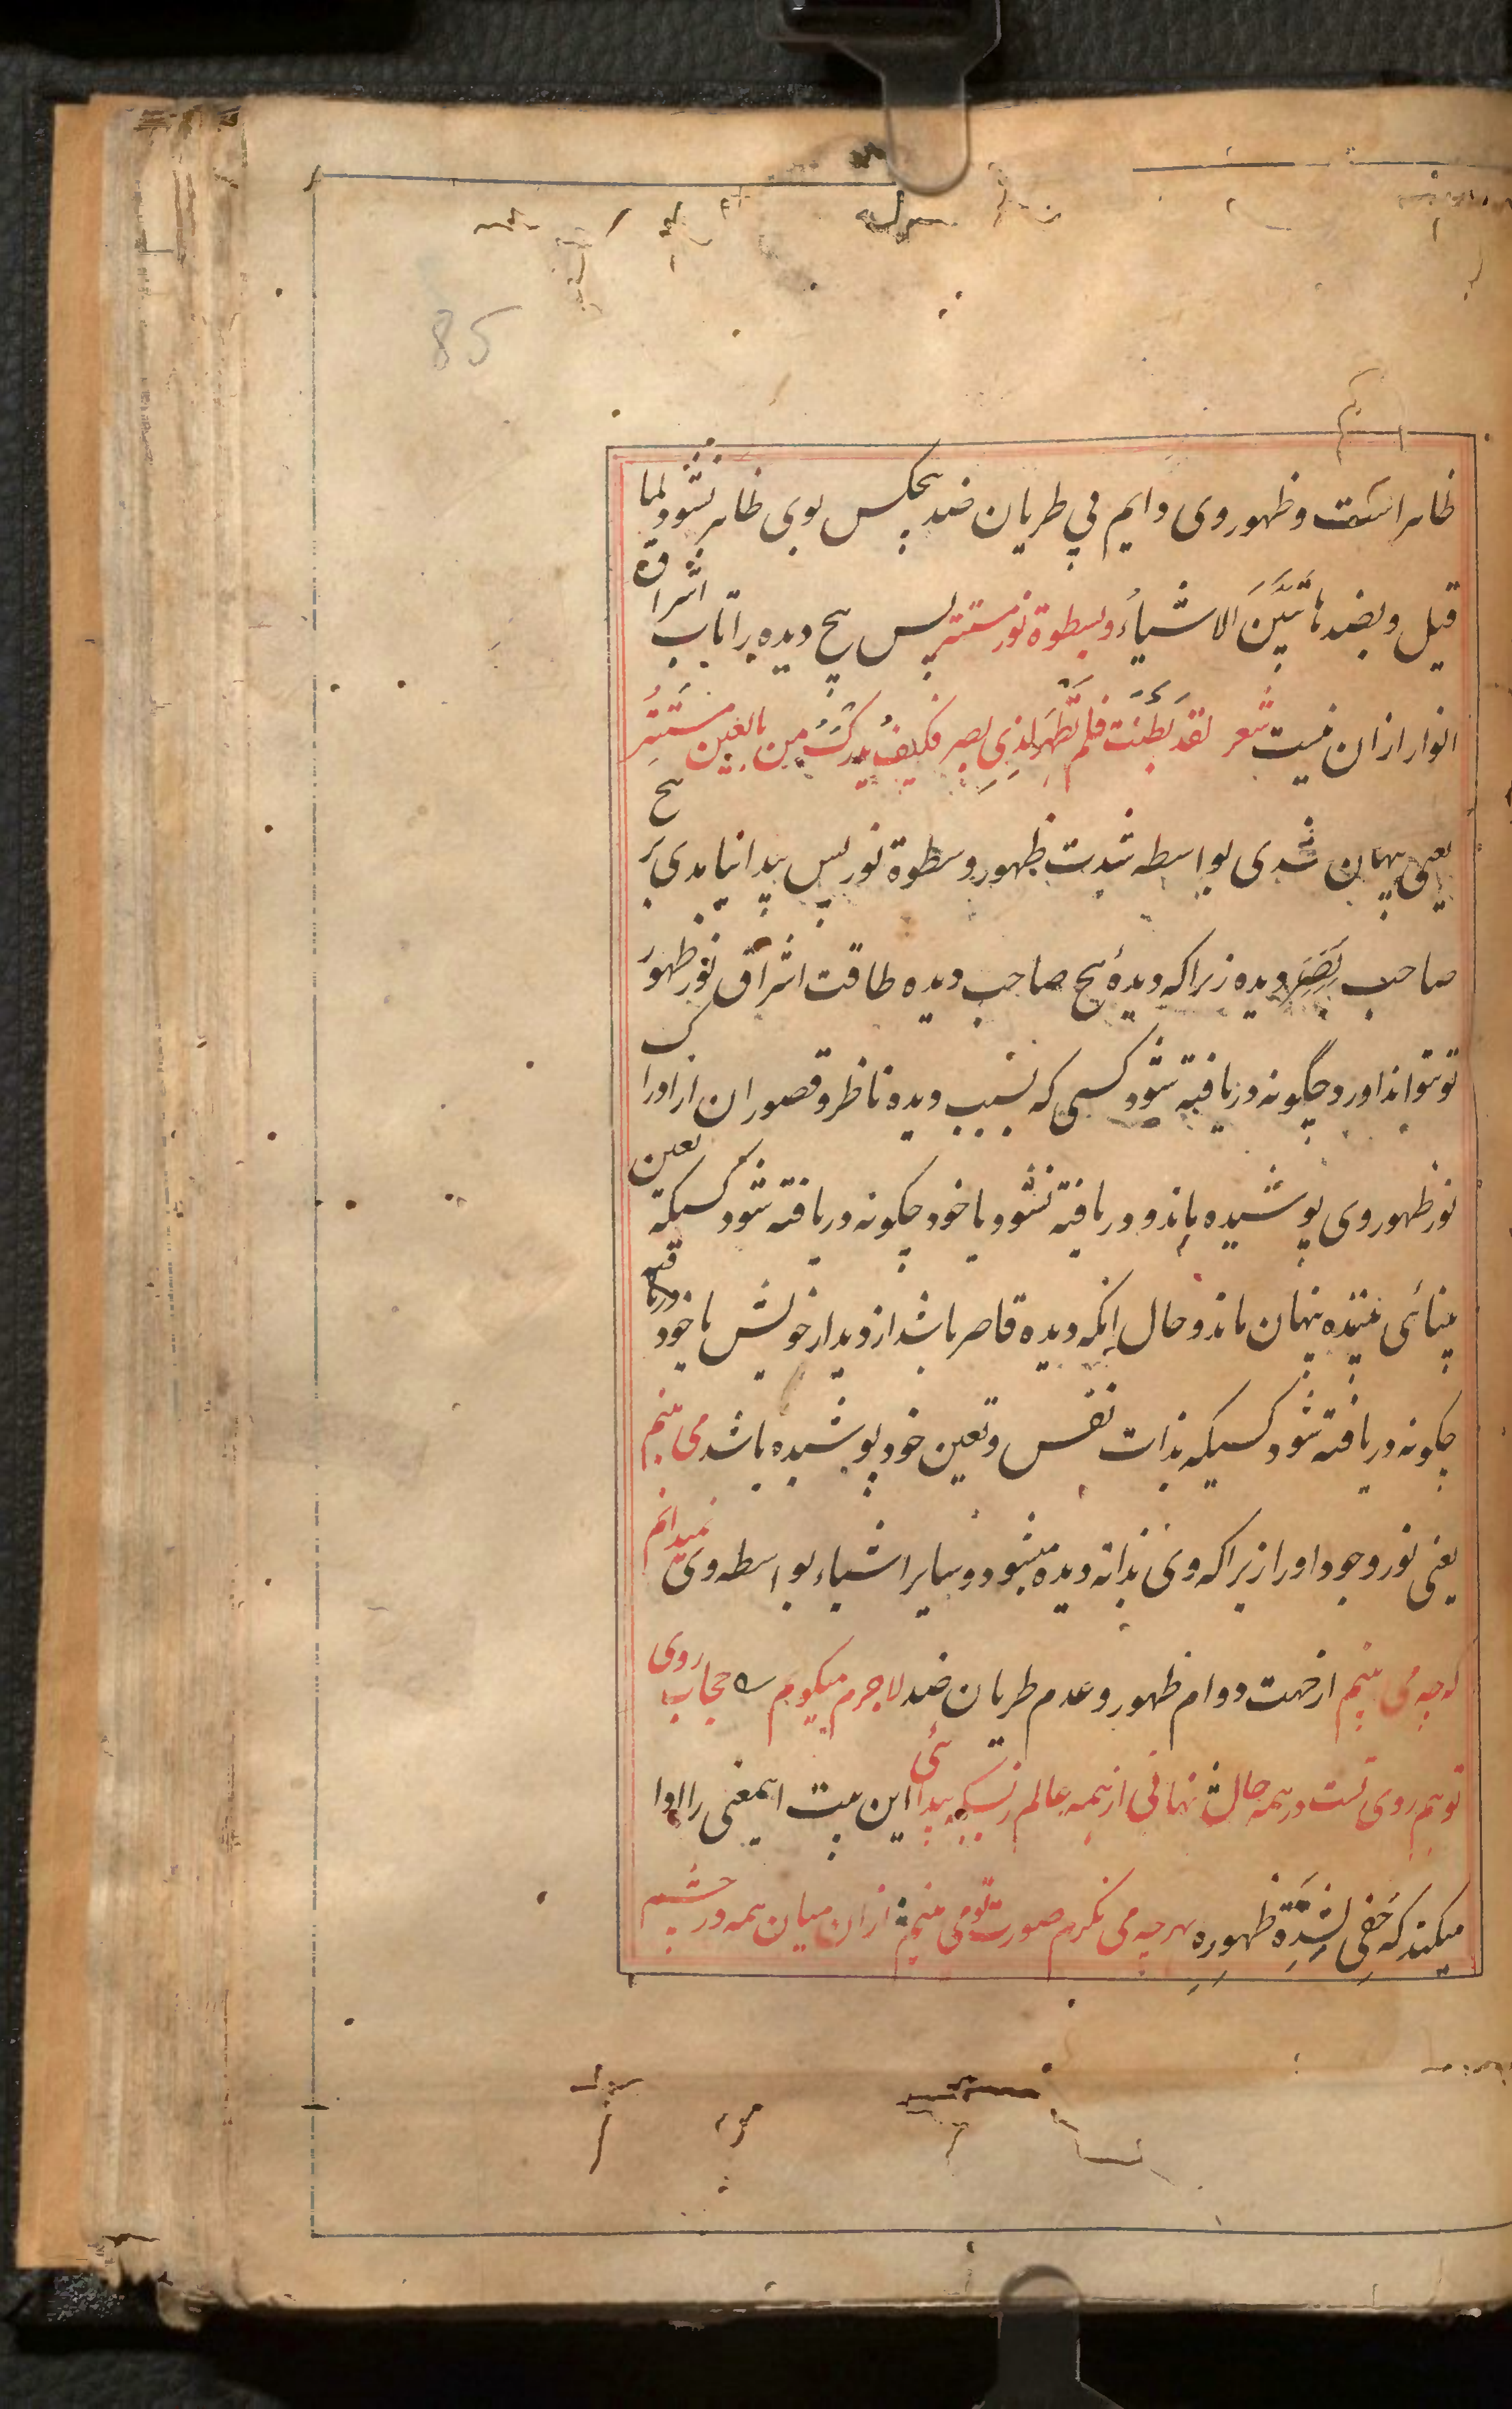 85
ظاهر است و ظهور وی دایم بی طریان ضد هیچکس بوی ظاهر نشود لما
قیل و بضدها تتبیّن الاشیاءُ و بسطوة نور مستتر پس هیچ دیده را تاب اشراق
انوار ازان نیست شعر لقد بَطُنَت فلم تَظْهَر لِذی بصر فکیف یُدرکُ مِن بالعین مستتِرُ
یعنی پنهان شدی بواسطه شدت ظهور و سطوة نور پس پیدا نیامدی بر هیچ
صاحب بصر دیده زیراکه دیدهٔ هیچ صاحب دیده طاقت اشراق نور ظهور
تو نتواند اورد و چگونه دریافته شود کسی که بسبب دیده ناظر و قصور ان از ادراک
نور ظهور وی پوشیده ماند و دریافته نشود یا خود چکونه دریافته شود کسیکه تعین
بینائی بیننده پنهان ماند و حال انکه دیده قاصر باشد از دیدار خویش یا خود دریافته
چکونه دریافته شود کسیکه بذات نفس و تعین خود پوشیده باشد می بینم
یعنی نور وجود او را زیراکه وی بذاته دیده میشود و سایر اشیاء بواسطه وی نمیدانم
که چه می بینم از جهت دوام ظهور و عدم طریان ضد لاجرم میکویم حجاب روی
تو هم روی تست در همه حال نهانی از همه عالم ز بسکه پیدائی این بیت اینمعنی را ادا
میکند که خَفِی لِشِدَّةِ ظهورِهِ بهر چه می نکرم صورت تو می بینم ازان میان همه در چشم